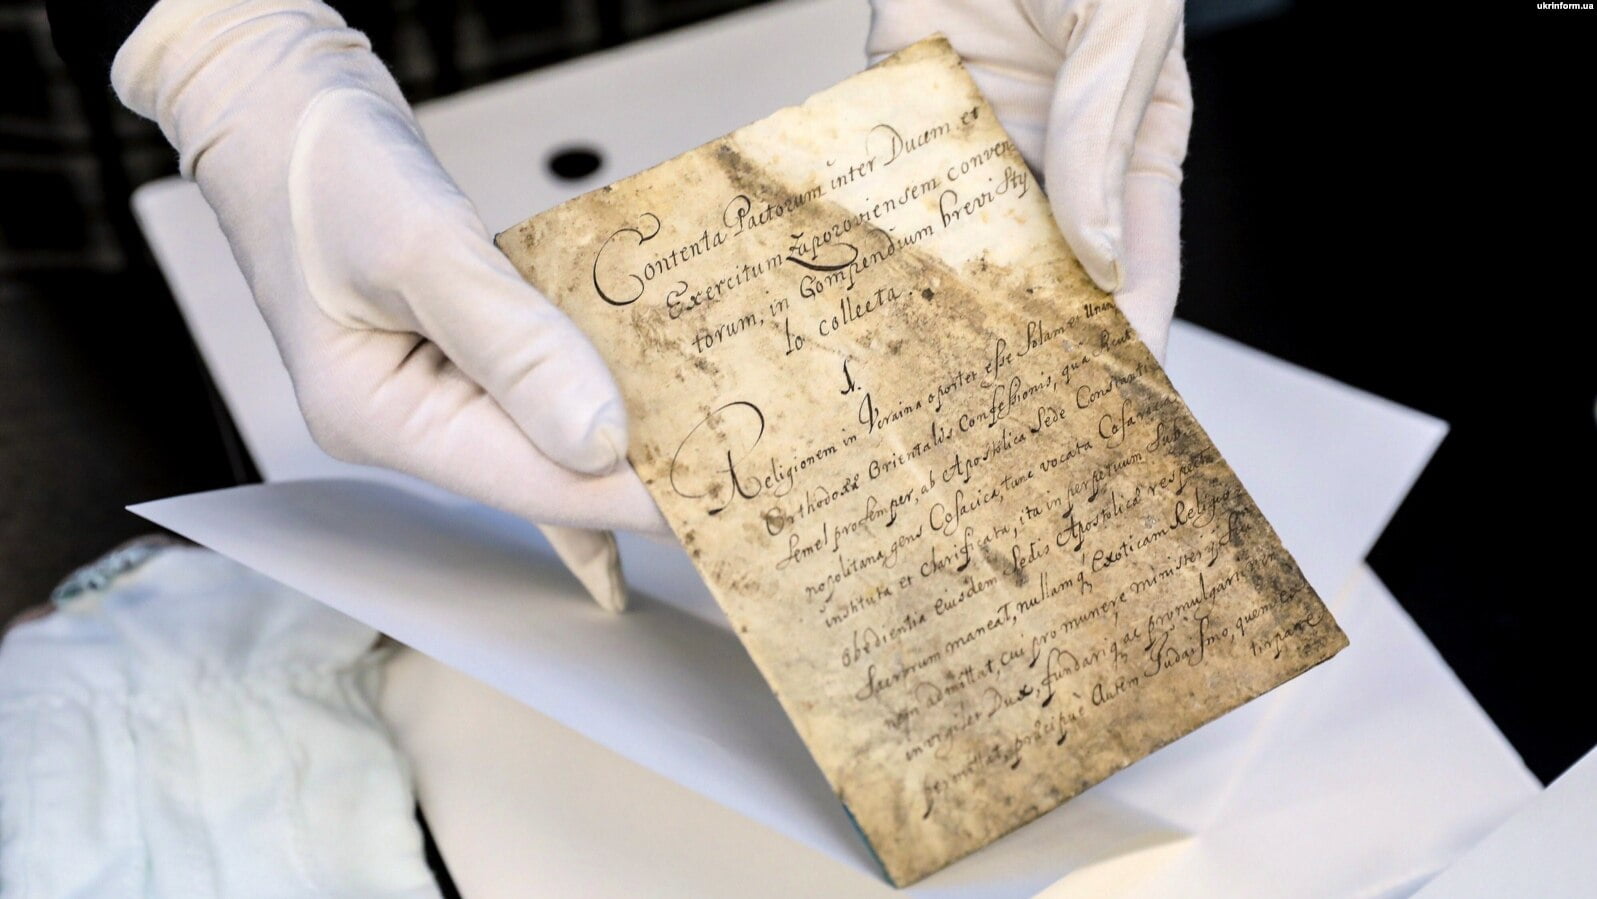 ukrinform.ua
Contenta Pactorum inter Ducem et
Exercitum Zaporoviensem conven
torum, in Compendium brevi Sty
lo collecta.
1.
Religionem in Ucraina oportet esse Solam et Unam
Orthodoxæ Orientalis Confessionis, quâ
semel pro semper, ab Apostolica Sede Constanti
nopolitana, gens Cosacica, tunc vocata
instituta et clarificata, ita in perpetuum Sub
obedientia eiusdem Sedis Apostolicæ
Sacrorum maneat, nullamq Exoticam
admittat, cui pro munere
invigilet Dux, fundariq ac promulgari
permittat, præcipuè Autem Judaismo, quem
tirpare